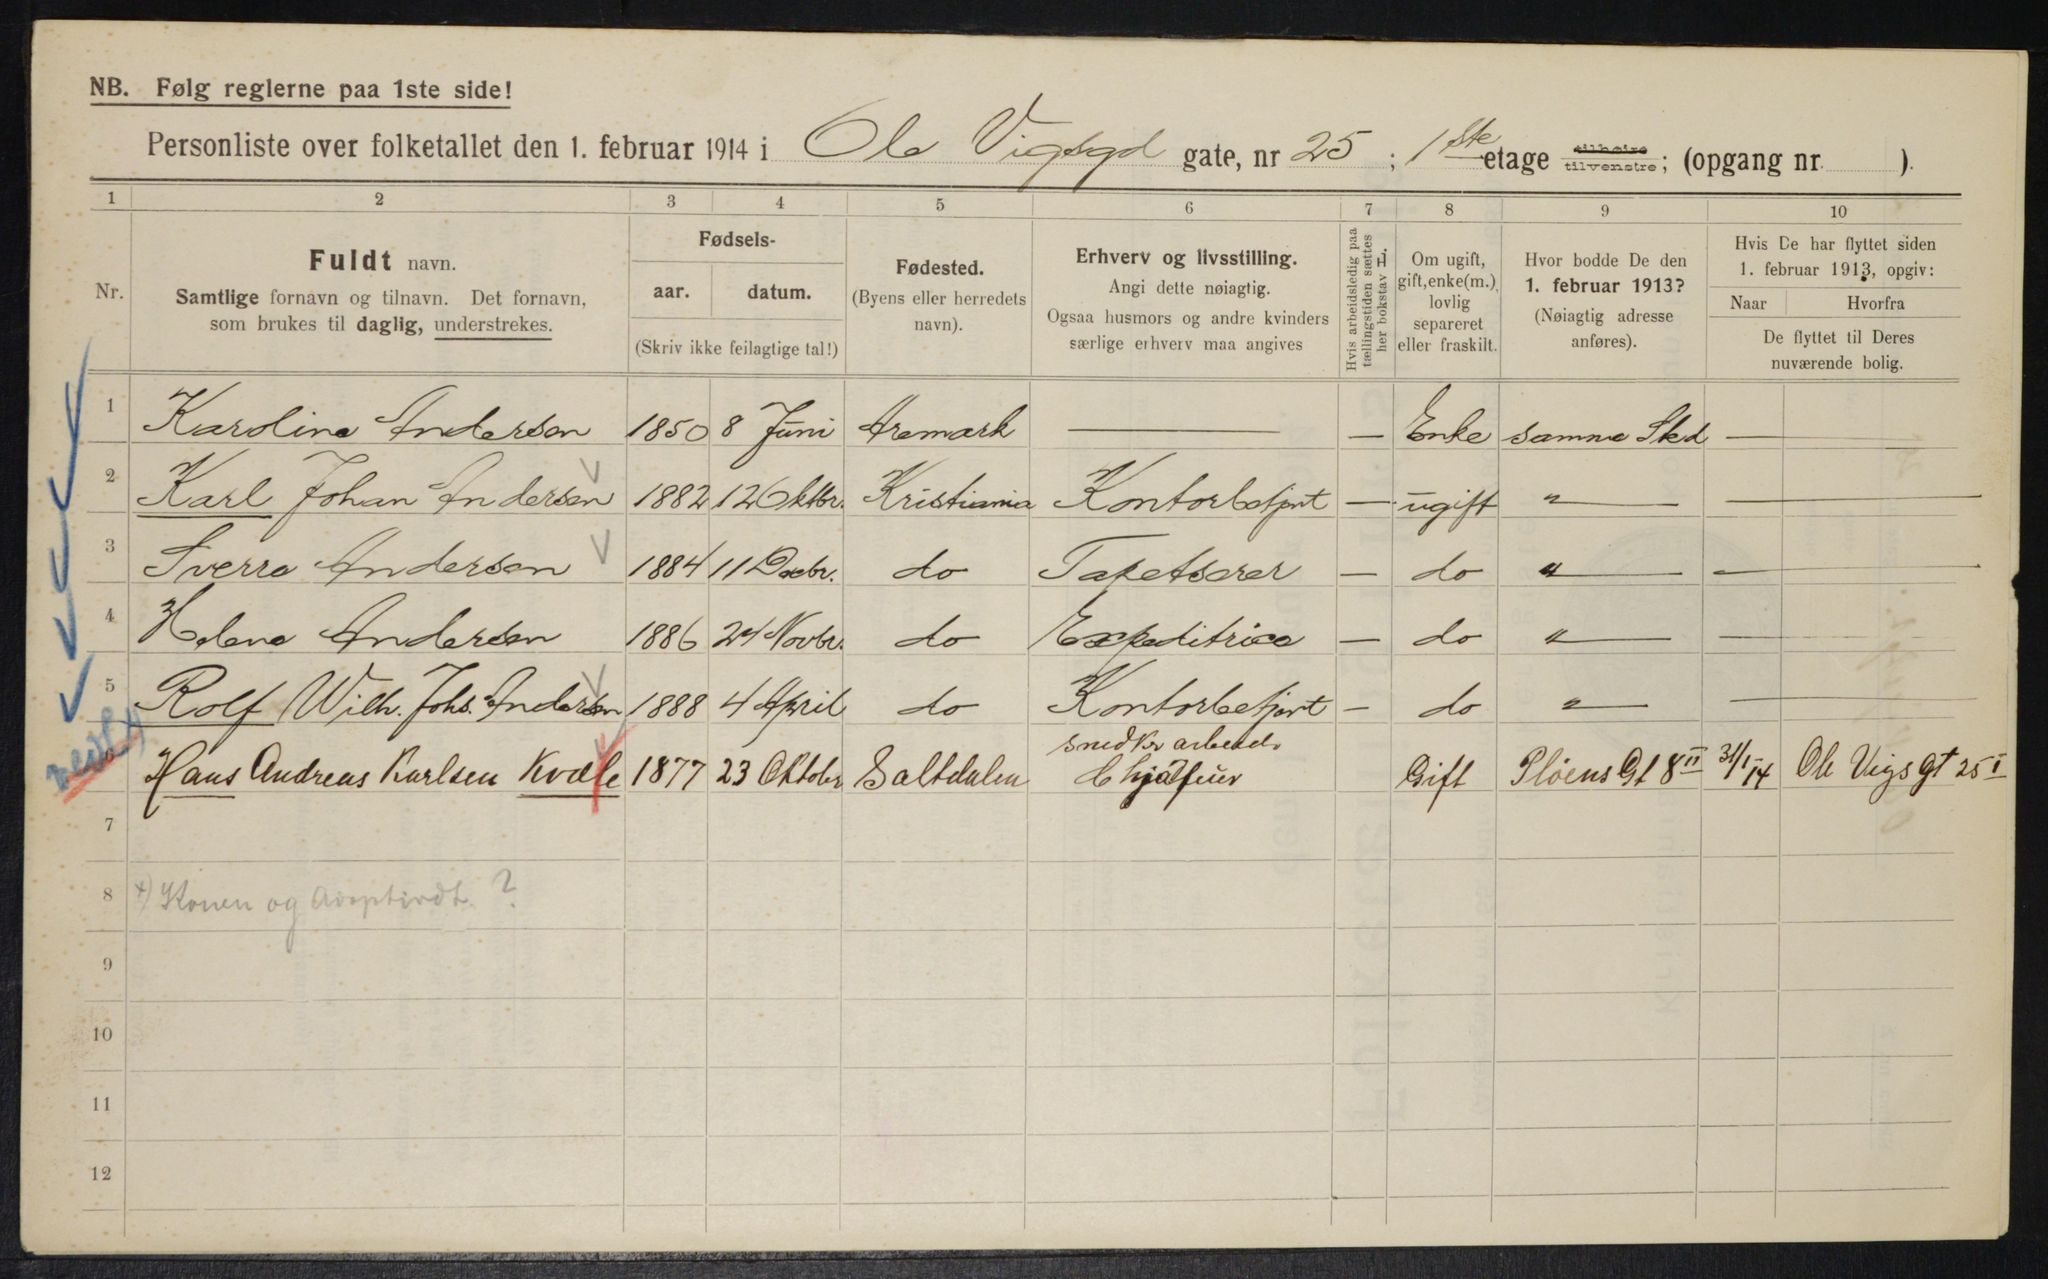 NB. Følg reglerne paa 1ste side!
Personliste over folketallet den 1. februar 1914 i Ole Vigsgd gate, nr 25 ; 1ste etage tilhøire tilvenstre; (opgang nr. ).
1 2 3 4 5 6 7 8 9 10
Nr.
Fuldt navn.
Samtlige fornavn og tilnavn. Det fornavn,
som brukes til daglig, understrekes.
Fødsels-
aar. datum.
(Skriv ikke feilagtige tal!)
Fødested.
(Byens eller herredets
navn).
Erhverv og livsstilling.
Angi dette nøiagtig.
Ogsaa husmors og andre kvinders
særlige erhverv maa angives
Hvis arbeidsledig paa
tællingstiden sættes
her bokstav L.
Om ugift,
gift, enke(m.),
lovlig
separeret
eller fraskilt.
Hvor bodde De den
1. februar 1913?
(Nøiagtig adresse
anføres).
Hvis De har flyttet siden
1. februar 1913, opgiv:
Naar Hvorfra
De flyttet til Deres
nuværende bolig.
1 Karoline Andersen 1850 8 Juni Aremark — — Enke samme Sted —
2 Karl Johan Andersen 1882 12 Oktbr. Kristiania Kontorbetjent — ugift " — —
3 Sverre Andersen 1884 11 Decbr. do Tapetserer — do " — —
4 Helene Andersen 1886 24 Novbr. do Expeditrice — do " — —
5 Rolf Wilh. Johs. Andersen 1888 4 April do Kontorbetjent — do " — —
snedker arbeid.
Hans Andreas Karlsen Kvæle 1877 23 Oktober Saltdalen Chjaffeur Gift Pløens Gt 8 II 31/1 14 Ole Vigs gt 25 I
7
8 x) Konen og Adoptivdt. ?
9
10
11
12